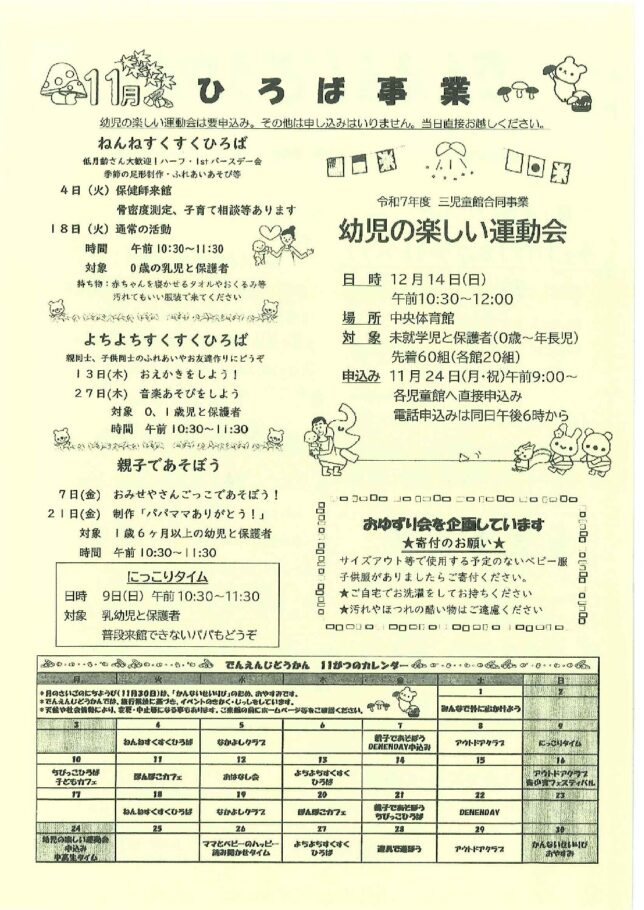 11月 ひろば事業
幼児の楽しい運動会は要申込み。その他は申し込みはいりません。当日直接お越しください。
ねんねすくすくひろば
低月齢さん大歓迎！ハーフ・1stバースデー会
季節の足形制作・ふれあいあそび等
4日（火）保健師来館
骨密度測定、子育て相談等あります
18日（火）通常の活動
時間 午前10:30～11:30
対象 0歳の乳児と保護者
持ち物：赤ちゃんを寝かせるタオルやおくるみ等
汚れてもいい服装で来てください
よちよちすくすくひろば
親同士、子供同士のふれあいやお友達作りにどうぞ
13日(木) おえかきをしよう！
27日(木) 音楽あそびをしよう
対象 0、1歳児と保護者
時間 午前10:30～11:30
親子であそぼう
7日(金) おみせやさんごっこであそぼう！
21日(金) 制作「パパママありがとう！」
対象 1歳6ヶ月以上の幼児と保護者
時間 午前10:30～11:30
にっこりタイム
日時 9日(日) 午前10:30～11:30
対象 乳幼児と保護者
普段来館できないパパもどうぞ
令和7年度 三児童館合同事業
幼児の楽しい運動会
日時 12月14日(日)
午前10:30～12:00
場所 中央体育館
対象 未就学児と保護者(0歳～年長児)
先着60組(各館20組)
申込み 11月24日(月・祝)午前9:00～
各児童館へ直接申込み
電話申込みは同日午後6時から
おゆずり会を企画しています
★寄付のお願い★
サイズアウト等で使用する予定のないベビー服
子供服がありましたらご寄付ください。
★ご自宅でお洗濯をしてお持ちください
★汚れやほつれの酷い物はご遠慮ください
でんえんじどうかん 11がつのカレンダー
月 火 水 木 金 土 日
*月のさいごのにちようび(11月30日)は、「かんないせいりび」のため、おやすみです。
1 2
みんなで外におかけよう
3 4 5 6 7 8 9
ねんねすくすくひろば なかよしクラブ 親子であそぼう DENENDAY申込み アウトドアクラブ にっこりタイム
10 11 12 13 14 15 16
ちびっこひろば 子どもカフェ ぽんぽこカフェ おはなし会 よちよちすくすくひろば アウトドアクラブ 青少育フェスティバル
17 18 19 20 21 22 23
ねんねすくすくひろば なかよしクラブ ぽんぽこカフェ 親子であそぼう ちびっこひろば DENENDAY
24 25 26 27 28 29 30
幼児の楽しい運動会申込み 中高生タイム ママとベビーのハッピー読み聞かせタイム よちよちすくすくひろば 遊具で遊ぼう アウトドアクラブ かんないせいりび おやすみ